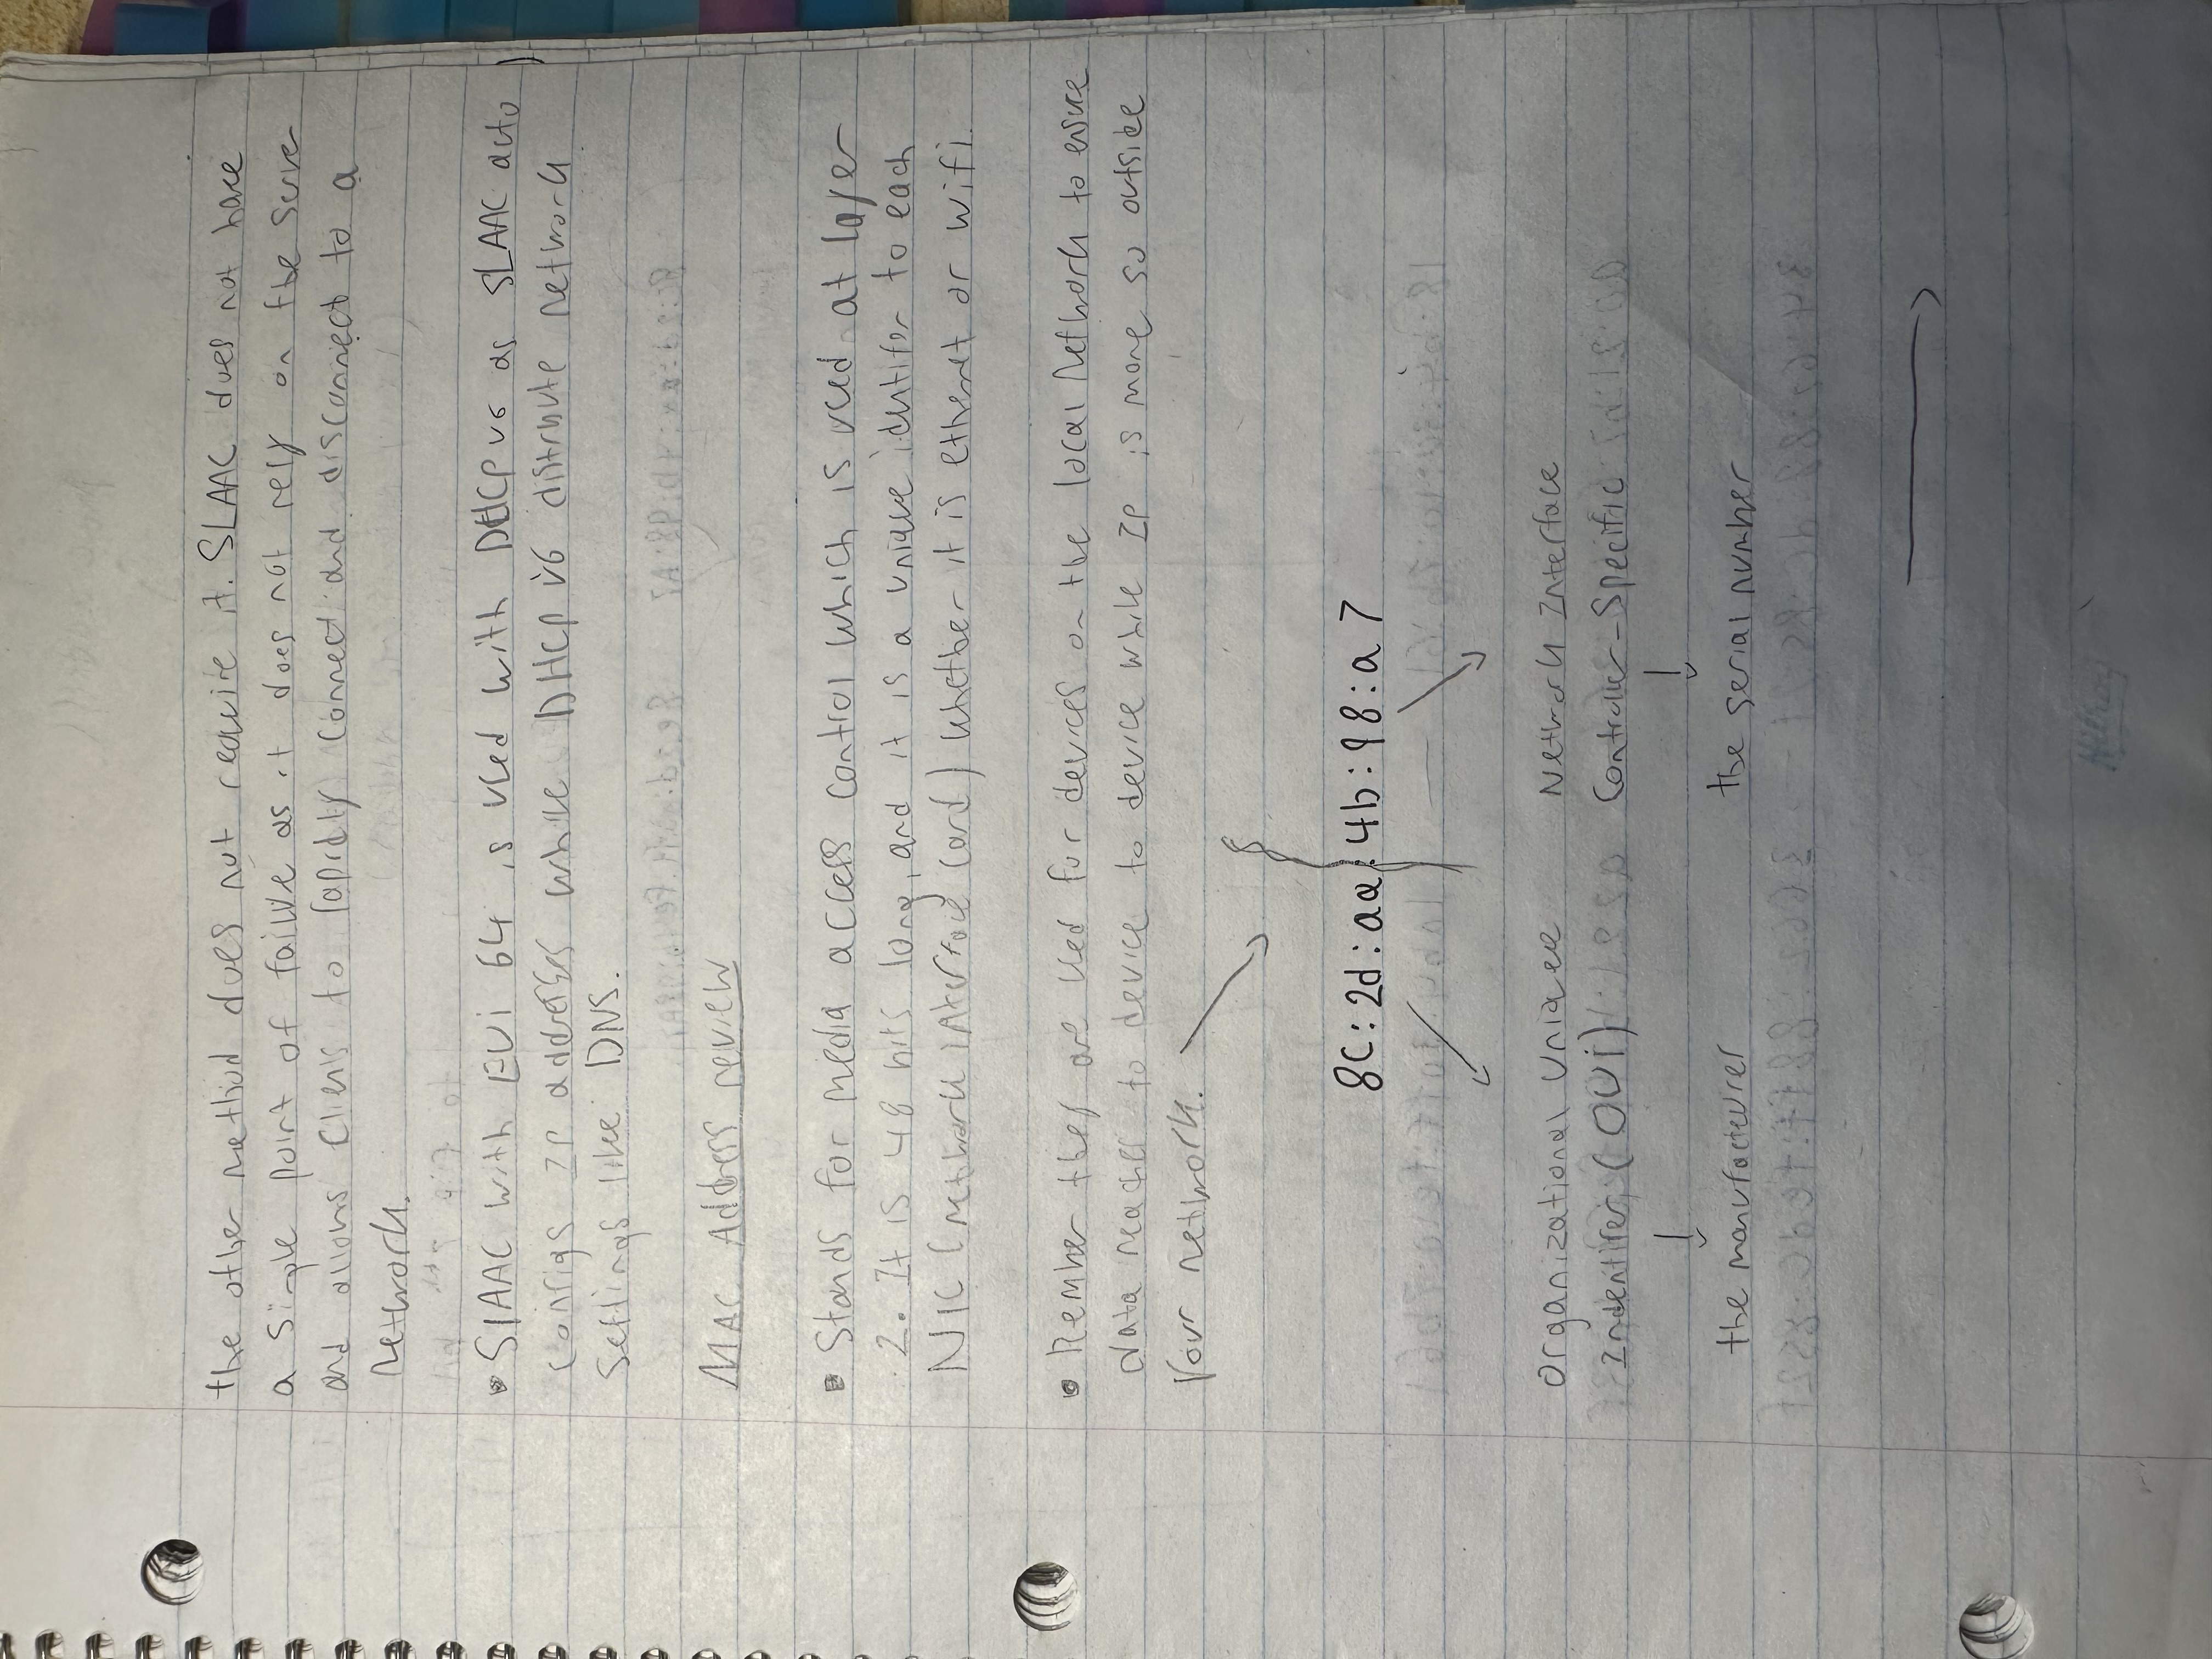 the other method does not require it. SLAAC does not have
a Single point of failure as it does not rely on the server
and allows Clients to rapidly connect and disconnect to a
Network.
• SLAAC with EUi 64 is used with DHCP v6 as SLAAC auto
Configs IP addresses while DHCP v6 distribute network
Settings like DNS.
MAC Address review
• Stands for media access control which is used at layer
2. It is 48 bits long, and it is a unique identifer to each
NIC (network interface card) whether it is ethernet or wifi.
• Rember they are used for devices on the local Network to ensure
data reaches to device to device while IP is more so outside
your network.
8C:2d:aa:4b:98:a7
Organizational Unique
Indentifer (OUi)
Network Interface
Controller-Specific
the manufacturer
the serial number
Hilroy